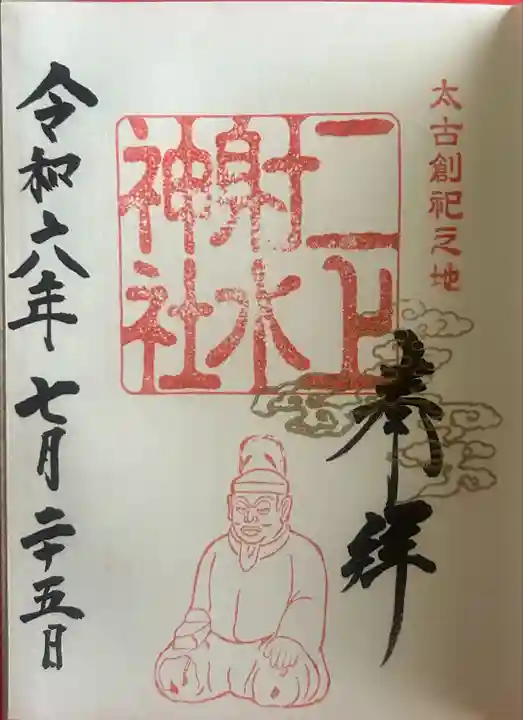 太古創祀之地
奉拝
二上
射水
神社
令和六年七月二十五日